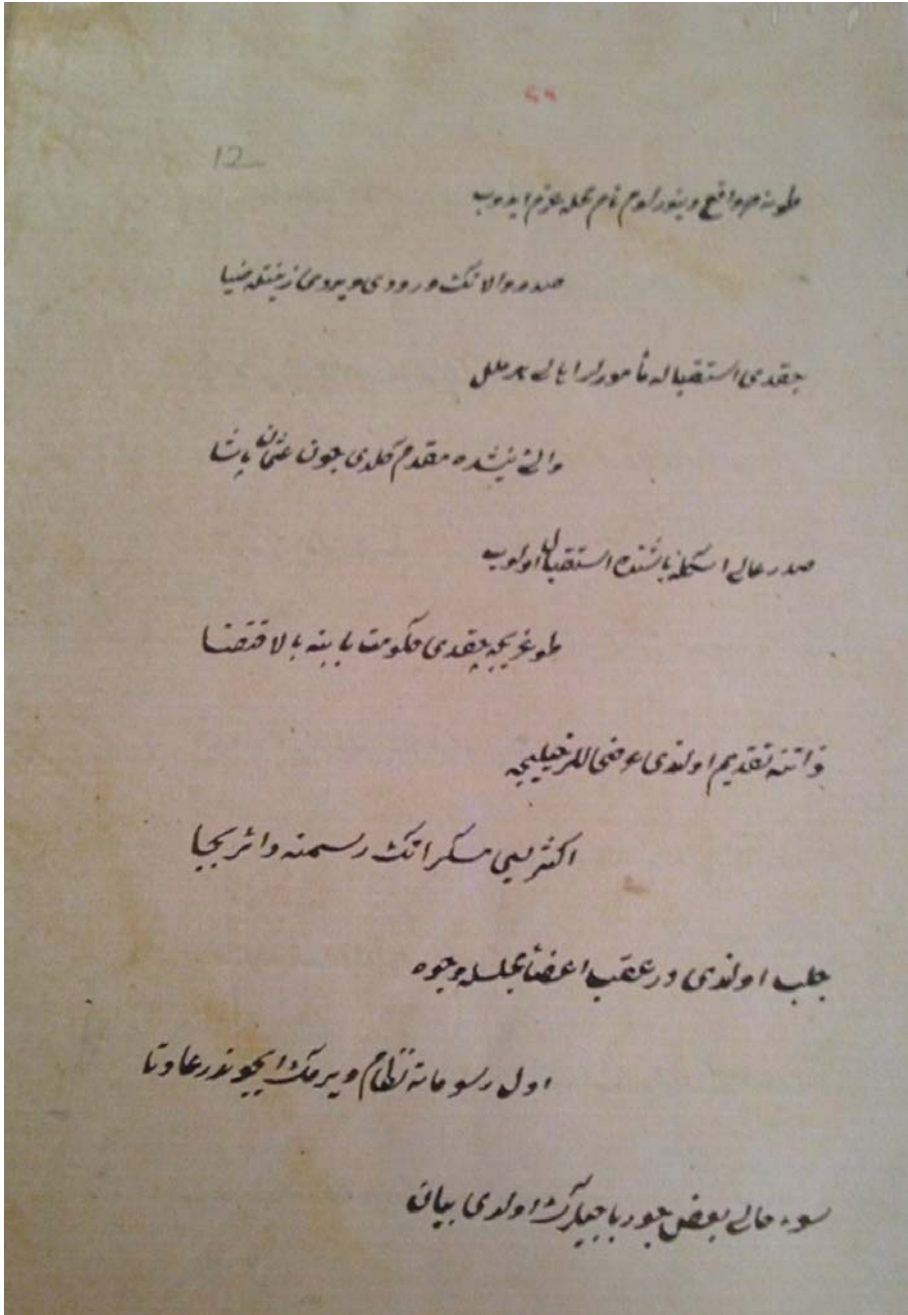 ٤٩
12
طونه‌ده واقع نام محله عزم ایدوب
صدر والانك ورودی ویردی ضیا
چقدی استقباله مأمورلر اهالی هر ملل
والئ نیشده مقدم كلدی چون عثمان پاشا
صدر عالی اسكله باشنده استقبال اولوب
طوغریجه چقدی حكومت بابنه بالاقتضا
ذاتنه تقدیم اولندی عرضحاللر خیلیجه
اكثریسی مسكراتك رسمنه دائر بجا
جلب اولندی در عقب اعضا مجلسله وجوه
اول رسوماته نظام ویرمك ایچوندر عادتا
سوء حالی بعض چورباجیلرك اولدی بیان